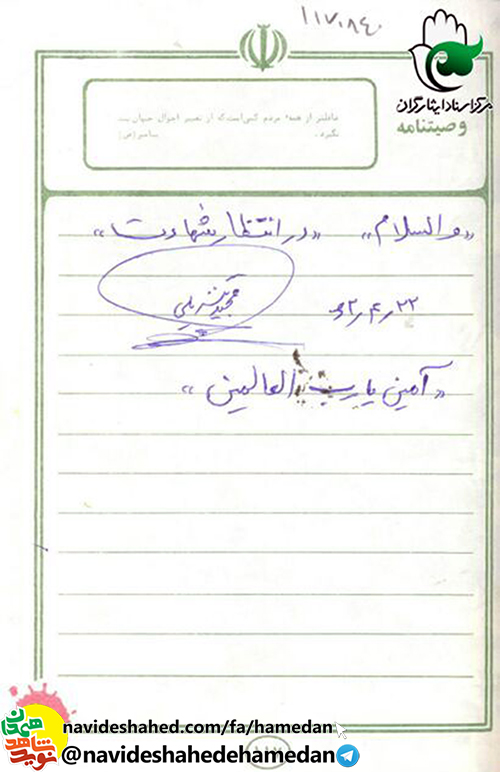 ۱۱۷۰۸۴۰
مرکز اسناد ایثارگران
وصیتنامه
غافلتر از همه مردم کسی است که از تغییر احوال جهان پند
نگیرد. پیامبر (ص)
«والسلام» «در انتظار شهادت»
۲۲ر۴ر
مجید
«آمین یا رب العالمین»
۱۱۷
نوید شاهد همدان
navideshahed.com/fa/hamedan
@navideshahedehamedan